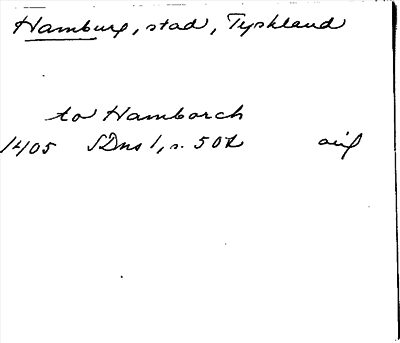 Hamburg, stad, Tyskland
to Hamborch
1405 SDns 1, s. 502 orig